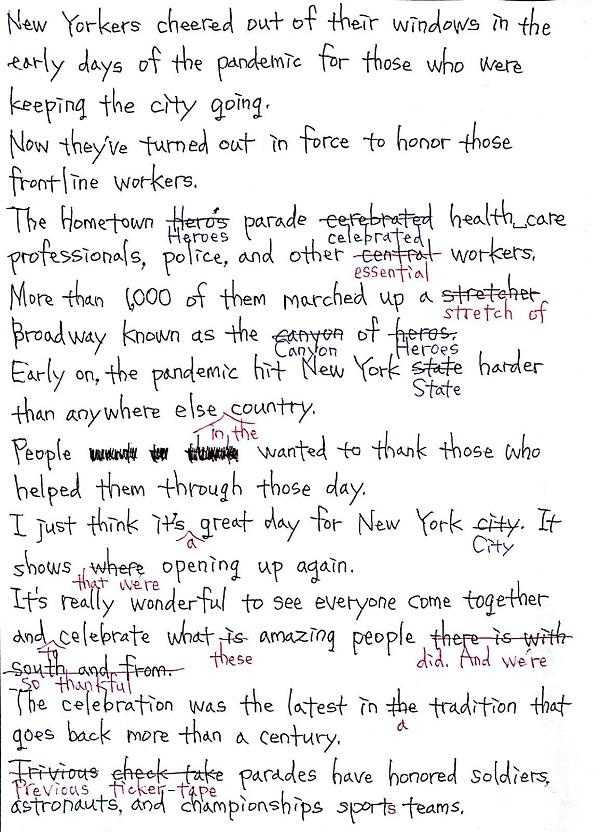 New Yorkers cheered out of their windows in the
early days of the pandemic for those who were
keeping the city going.
Now they've turned out in force to honor those
frontline workers.
The Hometown Hero's parade cerebrated health_care
Heroes celebrated
professionals, police, and other central workers.
essential
More than 1,000 of them marched up a stretcher
stretch of
Broadway known as the canyon of heros.
Canyon Heroes
Early on, the pandemic hit New York state harder
State
than anywhere else country.
in the
People wanted to thank those who
helped them through those day.
I just think it's great day for New York city. It
a City
shows where opening up again.
that were
It's really wonderful to see everyone come together
and celebrate what is amazing people there is with
to these did. And we're
south and from.
so thankful
The celebration was the latest in the tradition that
a
goes back more than a century.
Trivious check take parades have honored soldiers,
Previous ticker-tape
astronauts, and championships sports teams.